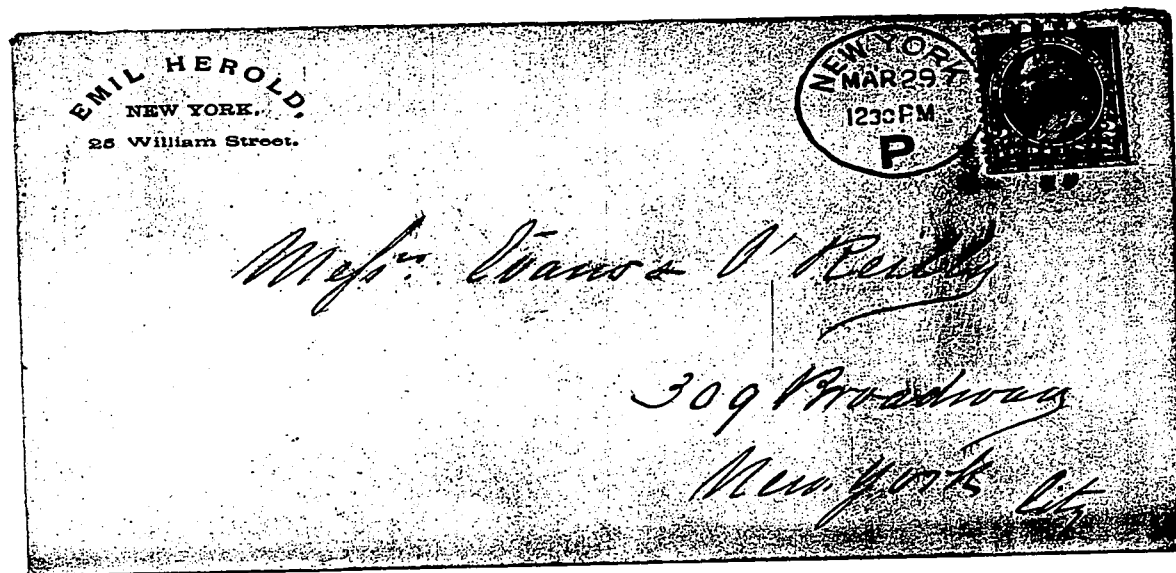 EMIL HEROLD.
NEW YORK.
25 William Street.
NEW YORK
MAR 29
1230 PM
P
Messrs. Evans & O'Reilly
309 Broadway
New York City